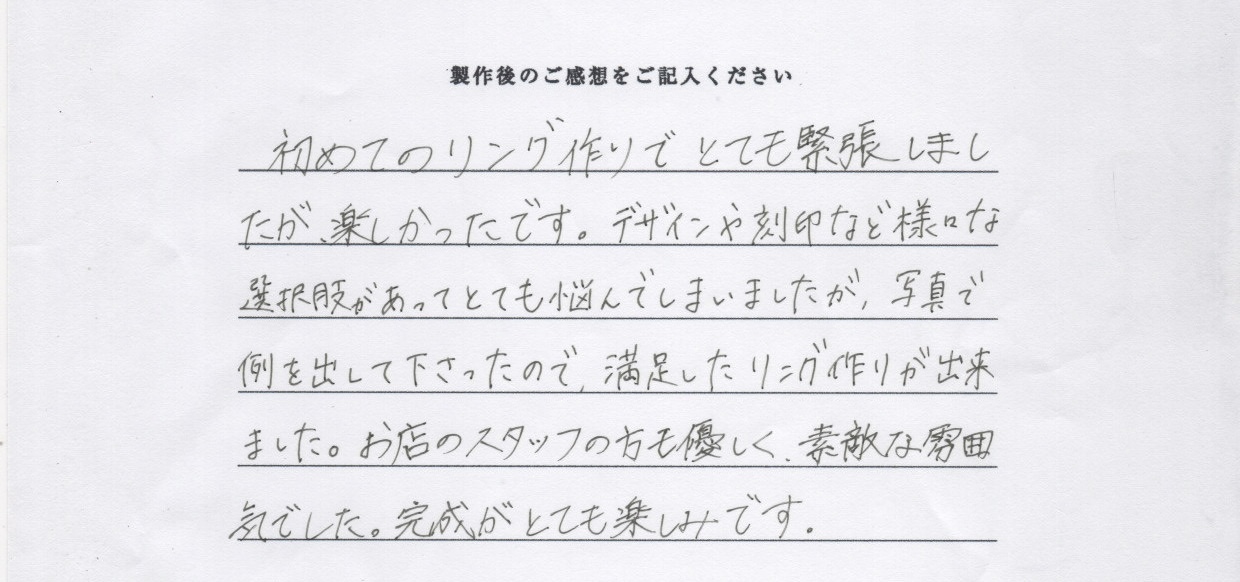 製作後のご感想をご記入ください
初めてのリング作りでとても緊張しまし
たが、楽しかったです。デザインや刻印など様々な
選択肢があってとても悩んでしまいましたが、写真で
例を出して下さったので、満足したリング作りが出来
ました。お店のスタッフの方も優しく、素敵な雰囲
気でした。完成がとても楽しみです。